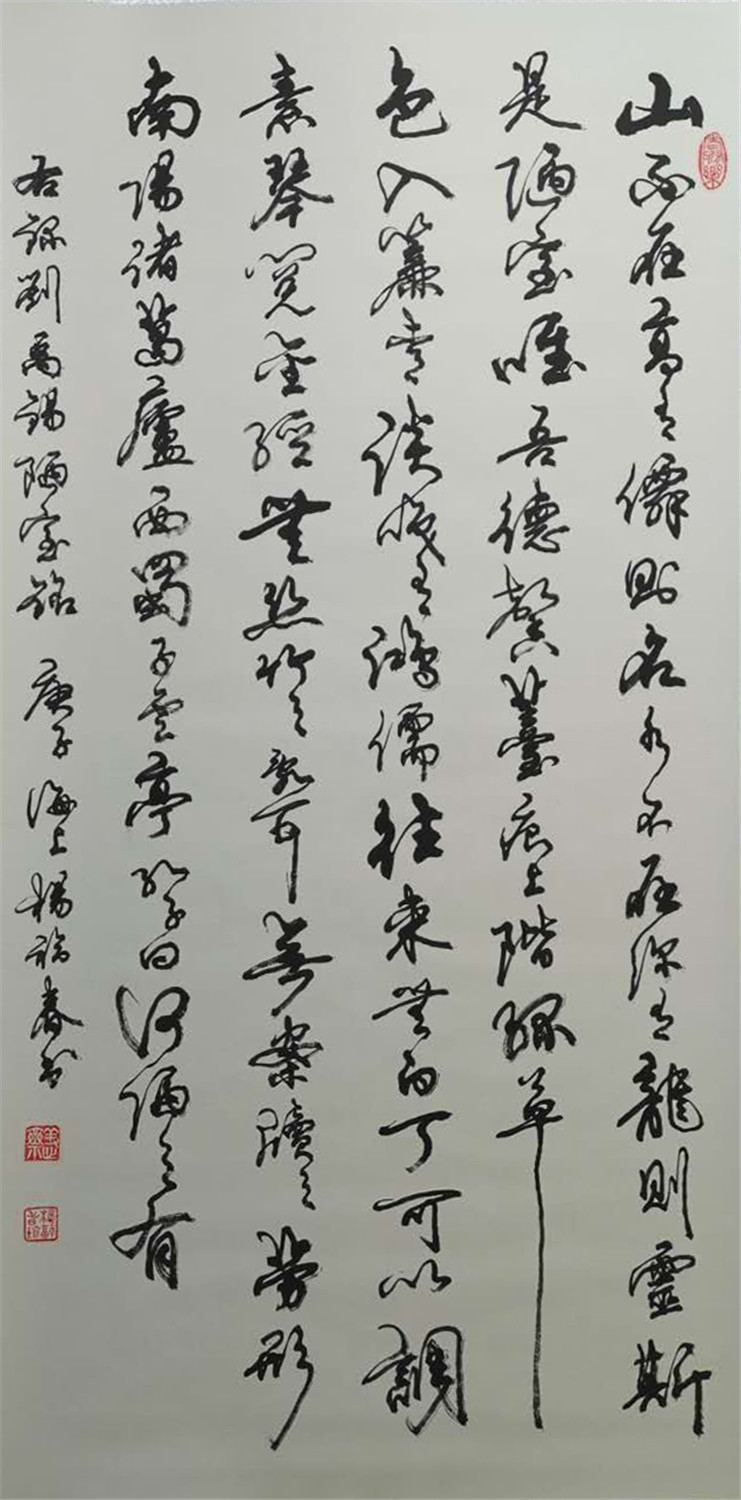 山不在高有僊則名水不在深有龍則靈斯
是陋室唯吾德馨薹痕上階綠草
色入簾青談咲有鴻儒往來無白丁可以調
素琴閱金經無絲竹之亂耳無案牘之勞形
南陽諸葛廬西蜀子雲亭孔子曰何陋之有
右錄劉禹錫陋室銘 庚子海上楊春書